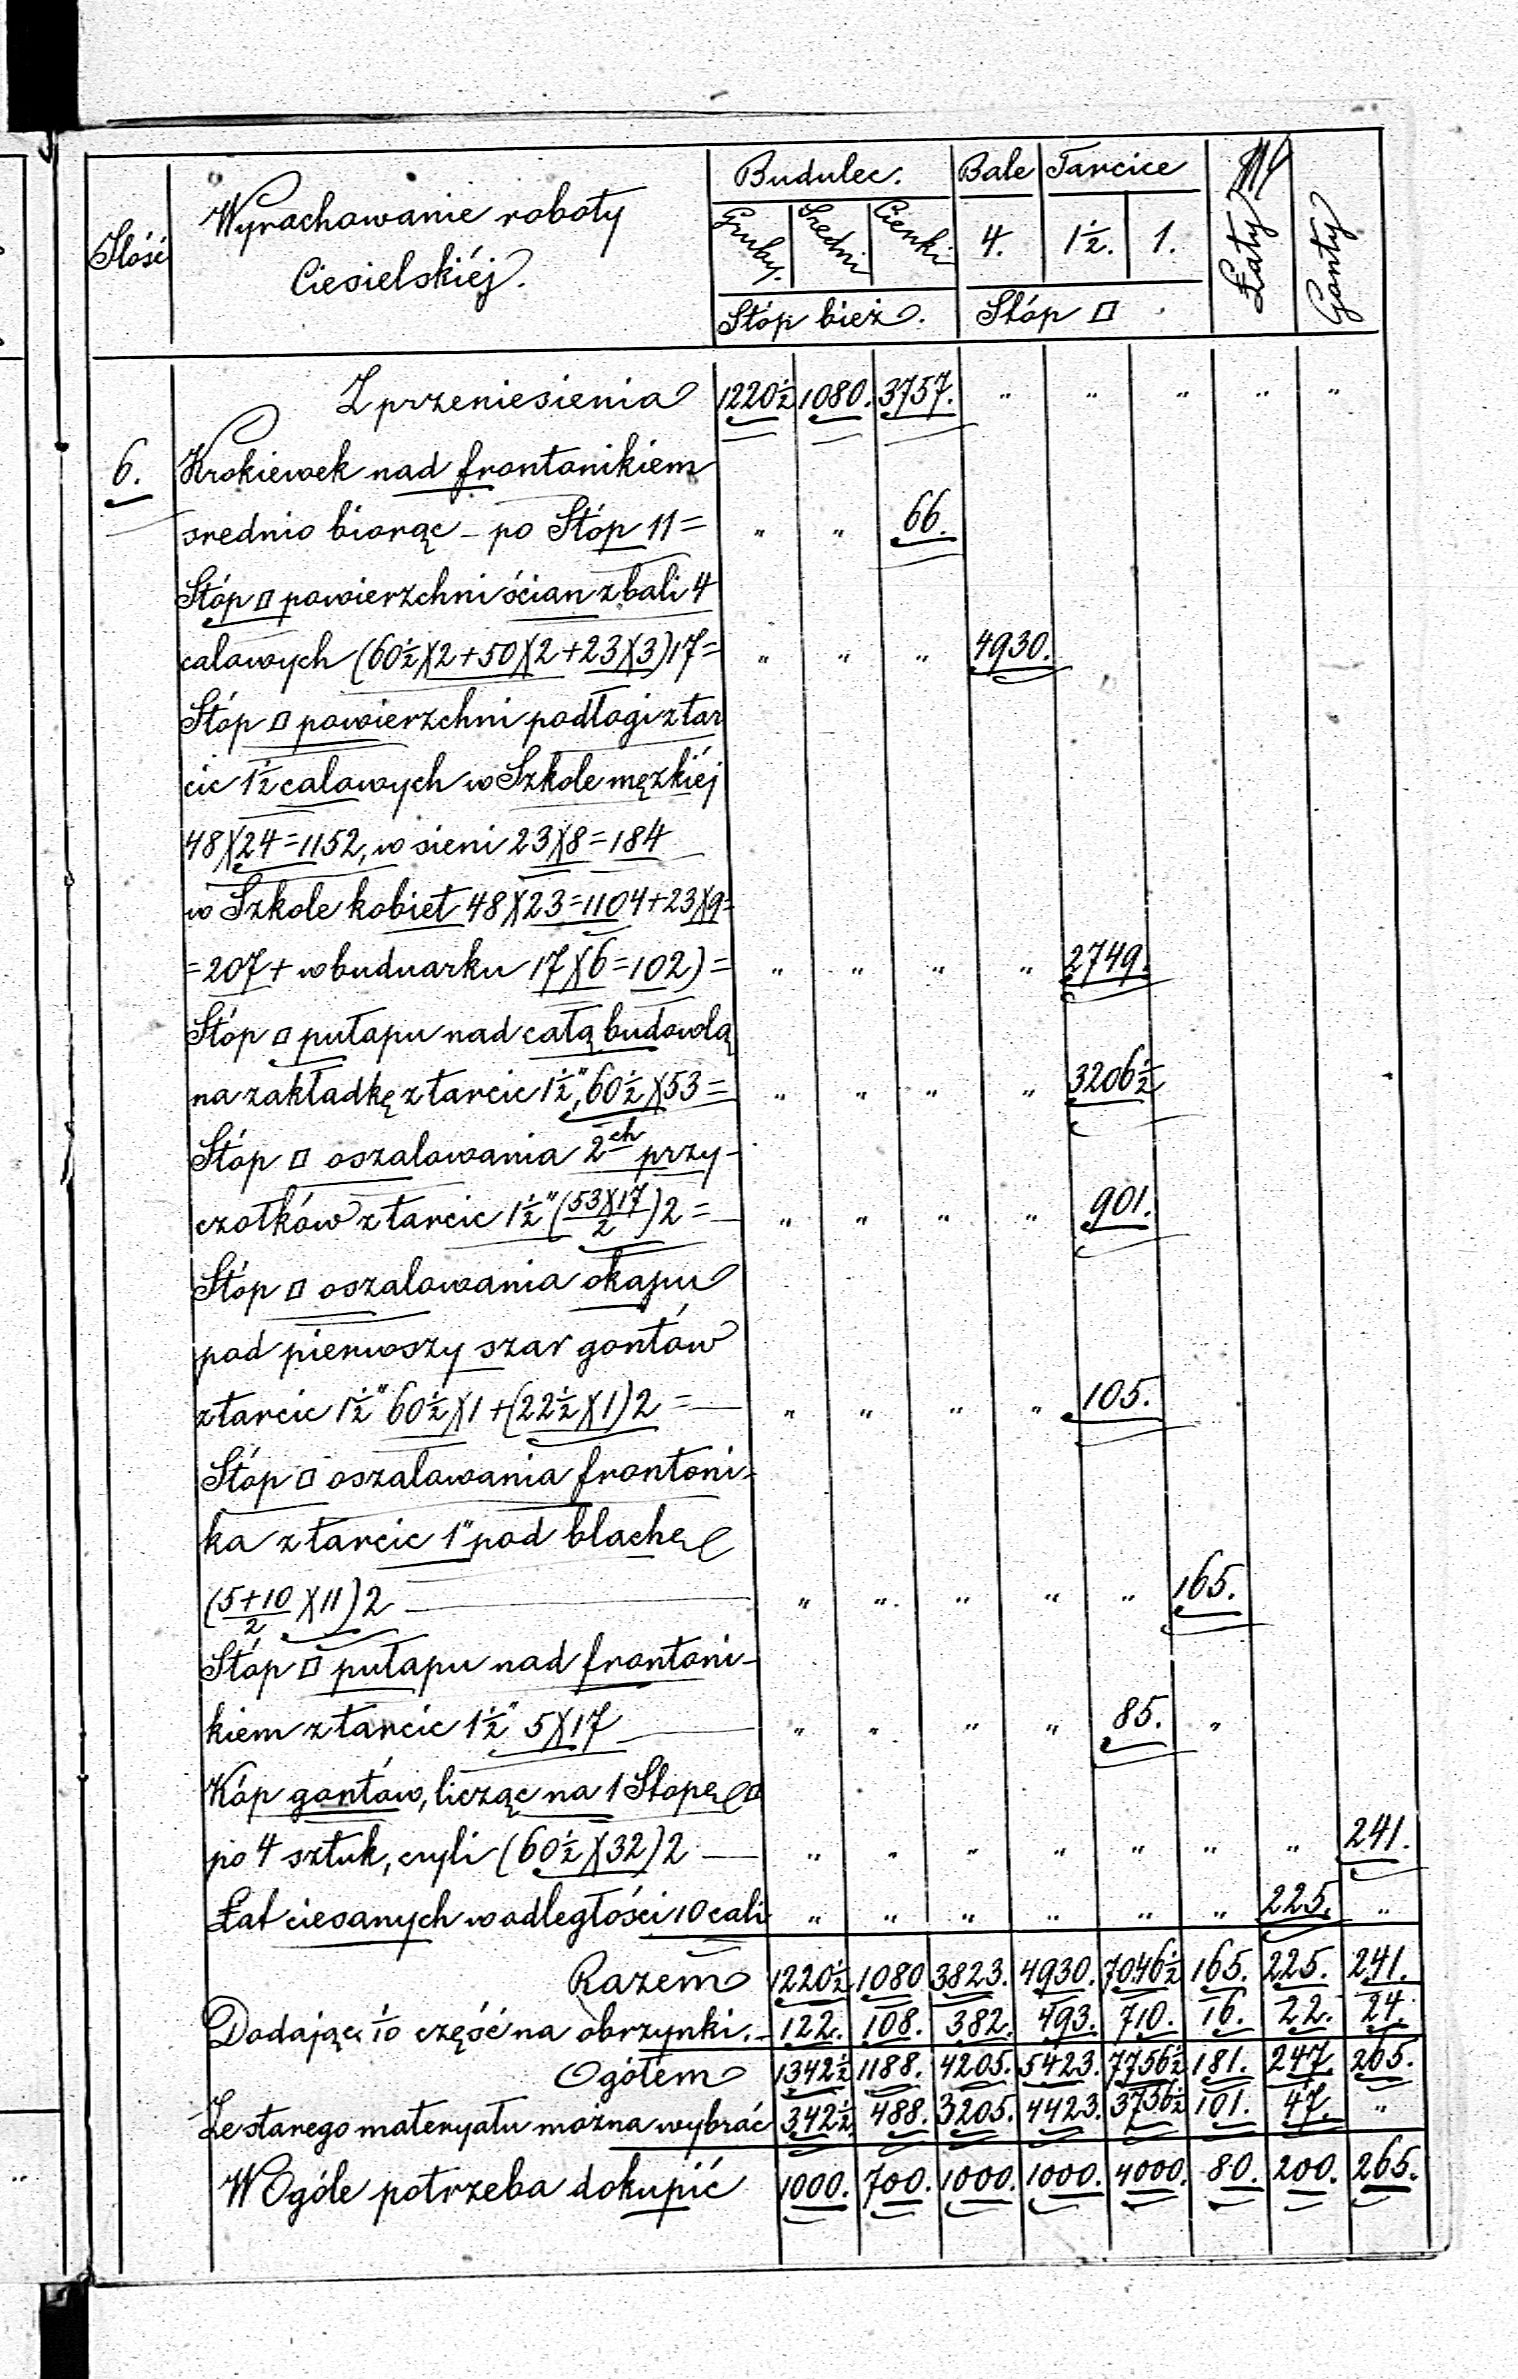 Ilość
Wyrachowanie roboty
Ciesielskiéj.
Budulec. Bale Tarcice
Gruby. Sredni Cienki 4. 1½. 1. Łaty Gonty
Stóp bież. Stóp □
Z przeniesienia 1220½ 1080. 3757. " " " " "
6. Krokiewek nad frontonikiem
srednio biorąc – po Stóp 11 = " " 66.
Stóp □ powierzchni ścian z bali 4
calowych (60½)(2+50)(2+23)(3)17= " " " 4930.
Stóp □ powierzchni podłogi z tar
cic 1½ calowych w Szkole męzkiéj
48)(24=1152, w sieni 23)(8=184
w Szkole kobiet 48)(23=1104+23)(9=
=207+ w buduarku 17)(6=102) = " " " " 2749.
Stóp □ pułapu nad całą budowlą
na zakładkę z tarcic 1½", 60½)(53= " " " " 3206½
Stóp □ oszalowania 2ch przy-
czołków z tarcic 1½" (53)(17/2)2 = " " " " 901.
Stóp □ oszalowania okapu
pod pierwszy szar gontów
z tarcic 1½" 60½)(1+(22½)(1)2 = " " " " 105.
Stóp □ oszalowania frontoni-
ka z tarcic 1" pod blachę
(5+10/2)(11)2 " " " " " 165.
Stóp □ pułapu nad frontoni-
kiem z tarcic 1½" 5)(17 " " " " 85. "
Kóp gontów, licząc na 1 Stopę □
po 4 sztuk, czyli (60½)(32)2 " " " " " " " 241.
Łat ciesanych w odległości 10 cali " " " " " " 225. "
Razem 1220½ 1080 3823. 4930. 7046½ 165. 225. 241.
Dodając 1/10 część na obrzynki. 122. 108. 382. 493. 710. 16. 22. 24.
Ogółem 1342½ 1188. 4205. 5423. 7756½ 181. 247. 265.
Ze starego materyału można wybrać 342½ 488. 3205. 4423. 3756½ 101. 47. "
W Ogóle potrzeba dokupić 1000. 700. 1000. 1000. 4000. 80. 200. 265.